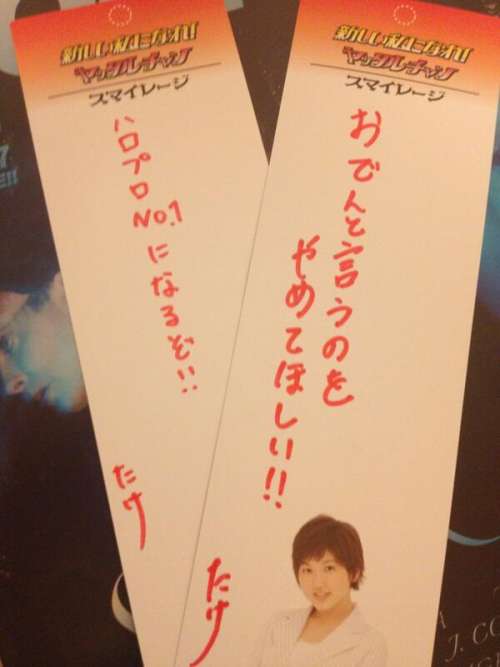 新しい私になれ!
ヤッタルチャン
スマイレージ
ハロプロ
No.1
になるぞ!!
たけ
新しい私になれ!
ヤッタルチャン
スマイレージ
おでんと言うのを
やめてほしい!!
たけ
7
J. CO